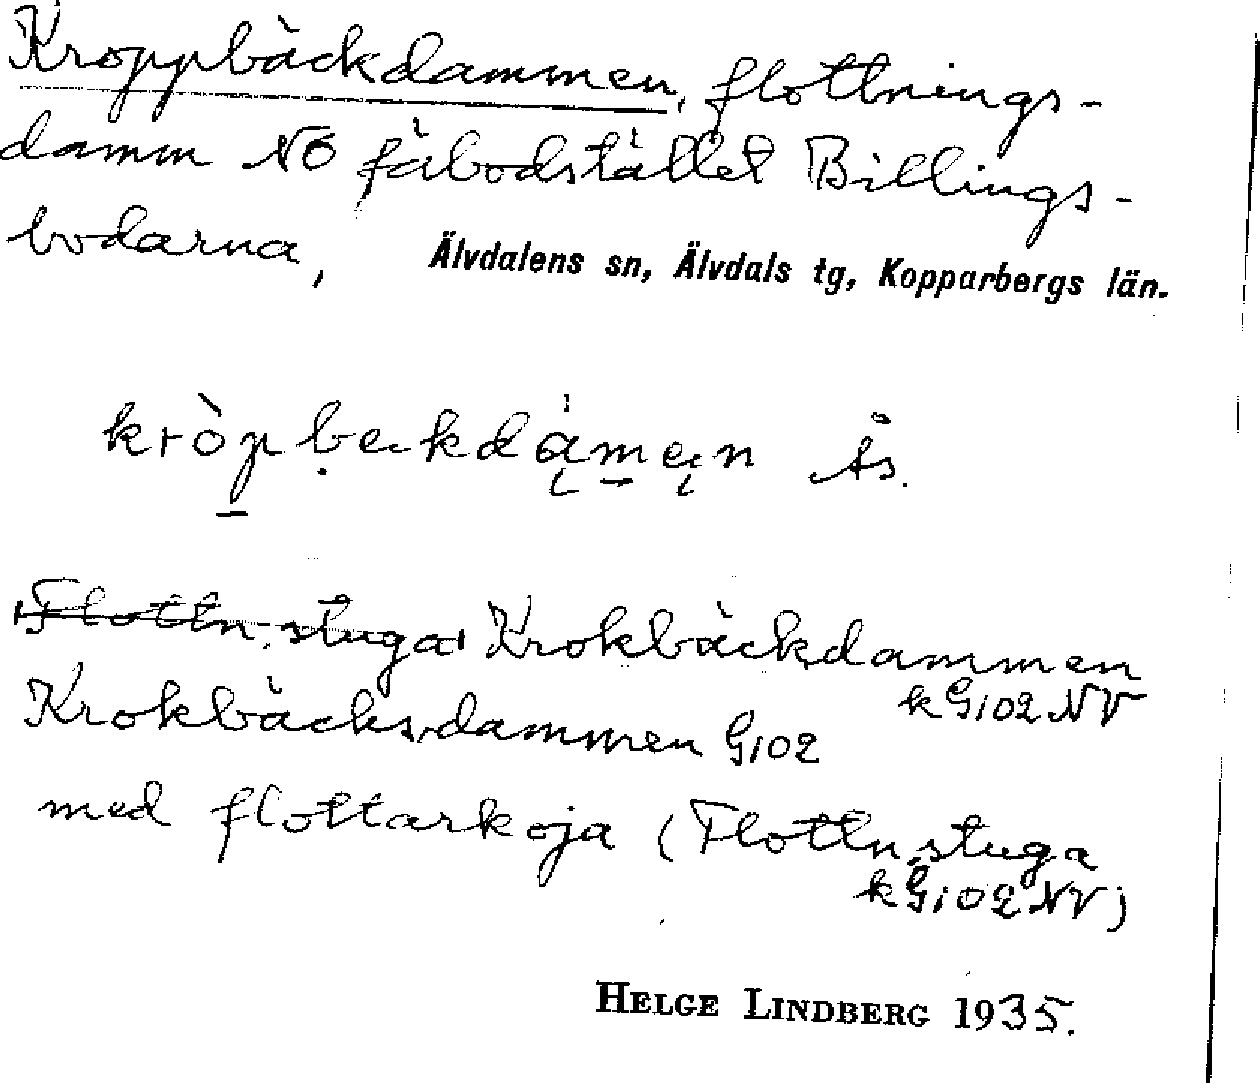 Kroppbäckdammen, flottnings-
damm NÖ fäbodstället Billings-
bodarna, Älvdalens sn, Älvdals tg, Kopparbergs län.
kròp̠ḅekdą̀m̠ęn Ås.
Flottn.stuga Krokbäcksdammen
kG102NV
Krokbäcksdammen G102
med flottarkoja (Flottn.stuga
kG102NV)
HELGE LINDBERG 1935.